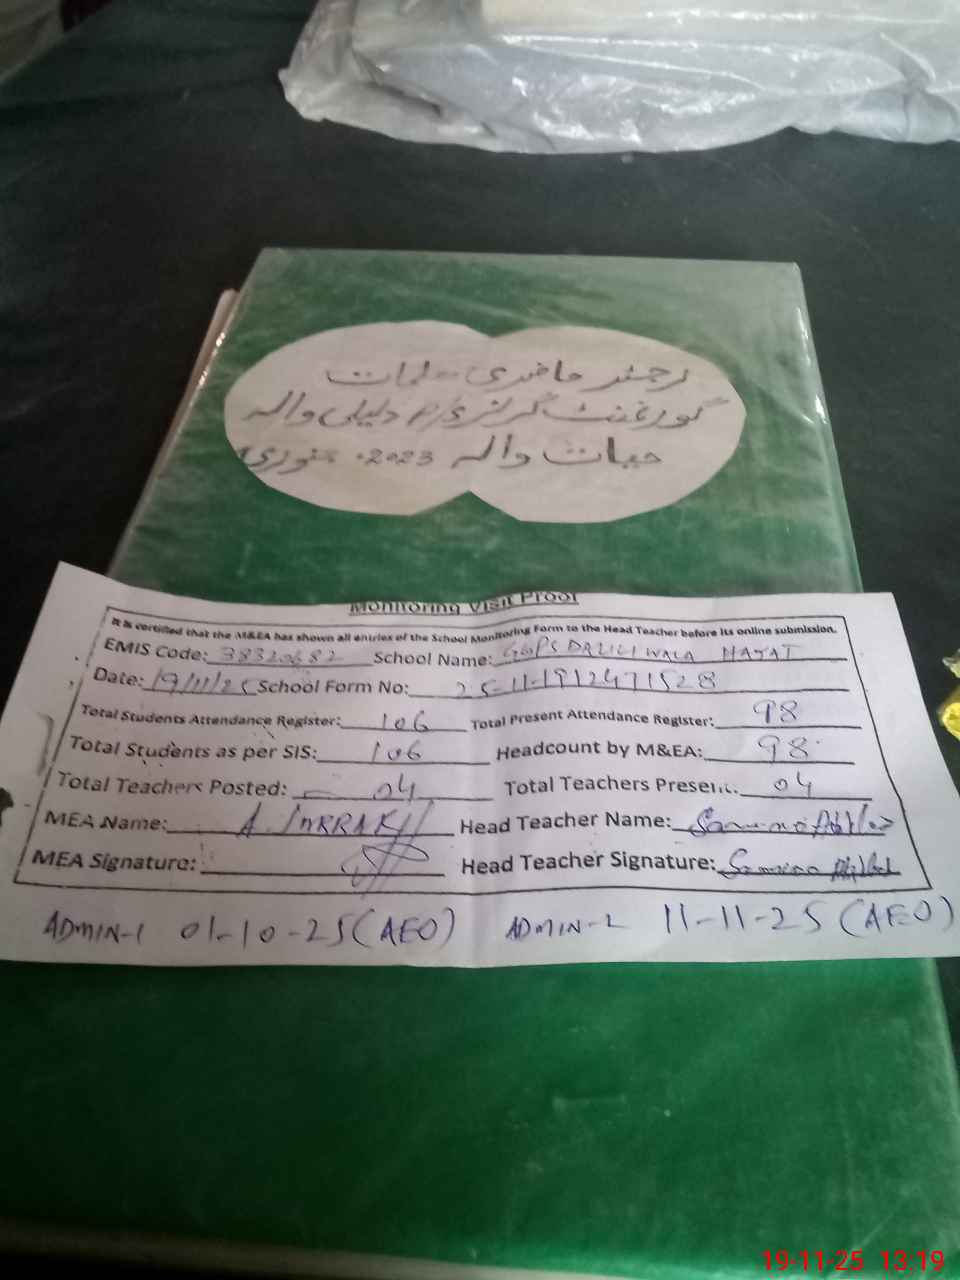 رجسٹر حاضری معلمات
گورنمنٹ گرلز پ/س دلیلی والہ
حیات والہ 2023. جنوری
Monitoring Visit Proof
It is certified that the M&EA has shown all entries of the School Monitoring Form to the Head Teacher before its online submission.
EMIS Code: 38320682 School Name: GGPS DALILI WALA HAYAT
Date: 19/11/25 School Form No: 25-11-1912471528
Total Students Attendance Register: 106 Total Present Attendance Register: 98
Total Students as per SIS: 106 Headcount by M&EA: 98
Total Teachers Posted: 04 Total Teachers Present: 04
MEA Name: A. Head Teacher Name:
MEA Signature: Head Teacher Signature:
ADMIN-1 01-10-25 (AEO) ADMIN-2 11-11-25 (AEO)
19-11-25 13:19